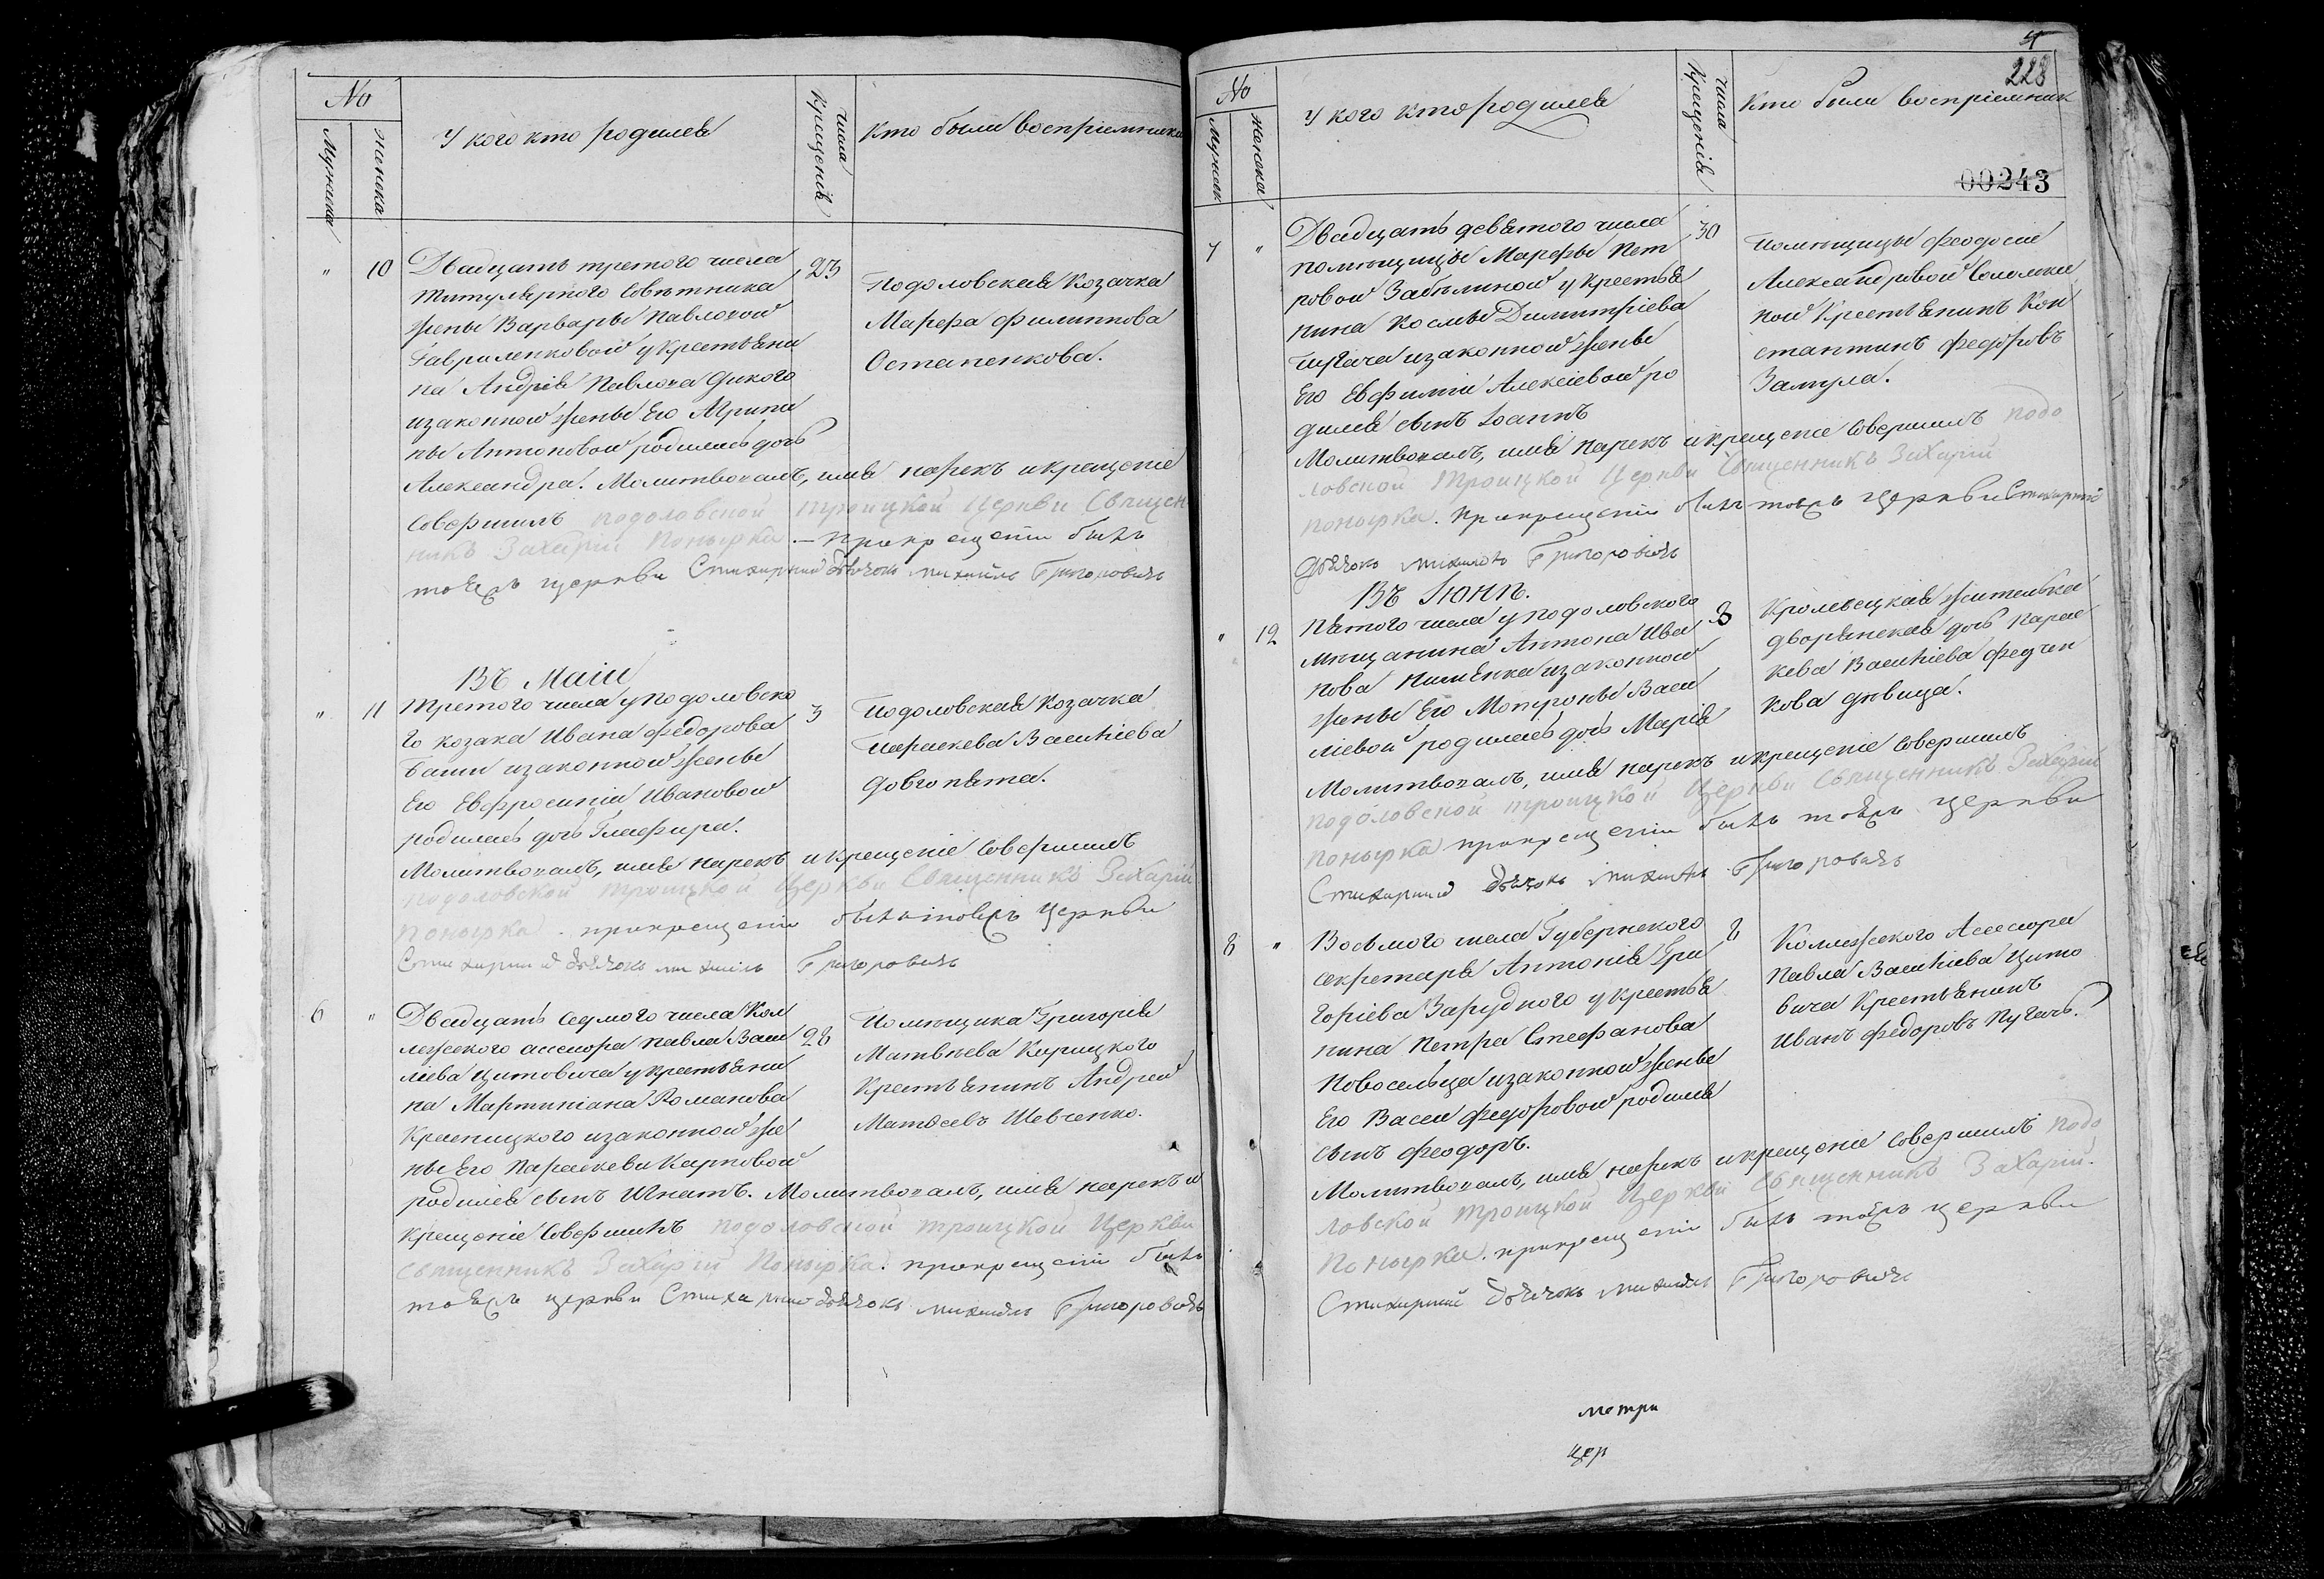 No
Мужеска
Женска
У кого кто родился
Числа
Крещенія
Кто были воспріемники
"
10
Двадцать третого числа
титулярного Совѣтника
жены Варвары Павловой
Гавриленковой у крестьяни
на Андрія Павлова Дикого
изаконной жены Его Агрипи
ны Антоновой родилась дочь
Александра. Молитвовалъ, имя нарекъ икрещеніе
Совершилъ подоловской троицкой Церкви Священ
никъ Захарій Понырка. — прикрещеніи былъ
тоейжъ церкви Стихарный дьячокъ михаилъ Григоровичь
23
Подоловская Козачка
Марфа Филиппова
Остапенкова.
Въ Маіи
"
11
Третого числа уподоловско
го козака Ивана Федорова
изаконной жены
Его Евфросиніи Ивановой
родилась дочь Глафира.
Молитвовалъ, имя нарекъ икрещеніе Совершилъ
подоловской троицкой Церкви Священникъ Захарій
Понырка. прикрещеніи былъ тоейжъ Церкви
Стихарный дьячокъ михаилъ Григоровичь
3
Подоловская Козачка
Параскева Василіева
Довгопята.
6
"
Двадцать седмого числа Кол
лежского ассесора Павла Васи
ліева Цитовича укрестьяни
на Мартиніана Романова
Красницкого изаконной же
ны Его Параскевы Карповой
родился сынъ Игнатъ. Молитвовалъ, имя нарекъ и
крещеніе Совершилъ подоловской троицкой Церкви
Священникъ Захарій Понырка. прикрещеніи былъ
тоейжъ церкви Стихарный дьячокъ михаилъ Григоровичь
28
Помѣщика Григорія
Матвѣева Кирицкого
Крестьянинъ Андрей
Матвеевъ Шевченко.
228
00243
No
Мужеск
Женска
У кого кто родился
Числа
Крещенія
Кто были воспріемник
7
"
Двадцать девятого числа
помѣщицы Марфы Пет
ровой Забѣлиной укрестья
нина Космы Димитріева
Пугача изаконной жены
Его Евфиміи Алексіевой ро
дился сынъ Іоаннъ
Молитвовалъ, имя нарекъ икрещеніе Совершилъ подо
ловской Троицкой Церкви Священникъ Захарій
понырка. прикрещеніи былъ тоейжъ церкви Стихарный
дьячокъ михаилъ Григоровичь
30
Помѣщицы Феодосіи
Александровой
ной Крестьянинъ Кон
стантинъ Федоровъ
Замула.
Въ Іюнѣ.
"
12
Пятого числа уподоловского
мѣщанина Антона Ива
нова изаконной
жены Его Мотроны Васи
ліевой родилась дочь Марія
Молитвовалъ, имя нарекъ икрещеніе Совершилъ
подоловской троицкой Церкви Священникъ Захарій
понырка прикрещеніи былъ тоейжъ церкви
Стихарный дьячокъ михаилъ Григоровичь
8
Кролевецкая жителька
дворянская дочь Парас
кева Василіева Федчен
кова дѣвица.
8
"
Восьмого числа Губернского
секретаря Антонія Гри
горіева Зарудного укрестья
нина Петра Стефанова
Новосельца изаконной жены
Его Васы Федоровой родился
сынъ Феодоръ.
Молитвовалъ, имя нарекъ икрещеніе Совершилъ подо
ловской троицкой Церкви Священникъ Захарій.
Понырка. прикрещеніи былъ тоейжъ церкви
Стихарный дьячокъ михаилъ Григоровичь
8
Коллежского Ассесора
Павла Василіева Цито
вича Крестьянинъ
Иванъ Федоровъ Пугачъ.
метри
цер